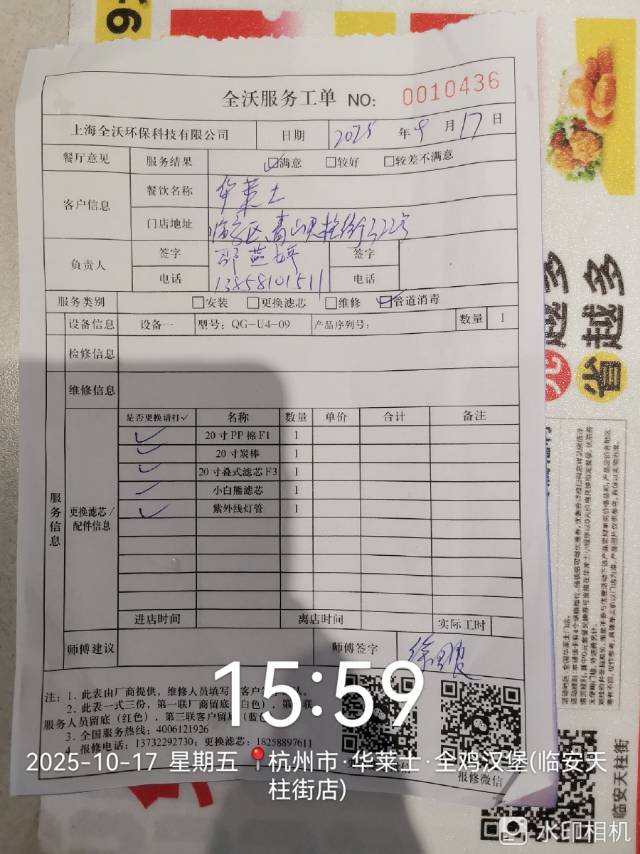 全沃服务工单 NO: 0010436
上海全沃环保科技有限公司 日期 2025 年 9 月 17 日
餐厅意见 服务结果 ☑满意 □较好 □较差不满意
客户信息 餐饮名称 华莱士
门店地址
负责人 签字 签字
电话 13858101511 电话
服务类别 □安装 □更换滤芯 □维修 ☑管道消毒
设备信息 设备一 型号: QG-U4-09 产品序列号: 数量 1
检修信息
维修信息
服务信息
更换滤芯/配件信息
是否更换请打✓ 名称 数量 单价 合计 备注
✓ 20寸PP棉F1 1
✓ 20寸炭棒 1
✓ 20寸叠式滤芯F3 1
✓ 小白熊滤芯 1
✓ 紫外线灯管 1
进店时间 离店时间 实际工时
师傅建议 师傅签字
注: 1. 此表由厂商提供, 维修人员填写
2. 此表一式三份, 第一联厂商留底
服务人员留底（红色）, 第三联客户留
3. 全国服务热线: 4006121926
4. 报修电话: 13732292730; 更换滤芯: 18258897611
报修微信
15:59
2025-10-17 星期五 杭州市·华莱士·全鸡汉堡(临安天
柱街店)
水印相机
越多
省越多
临安天柱街